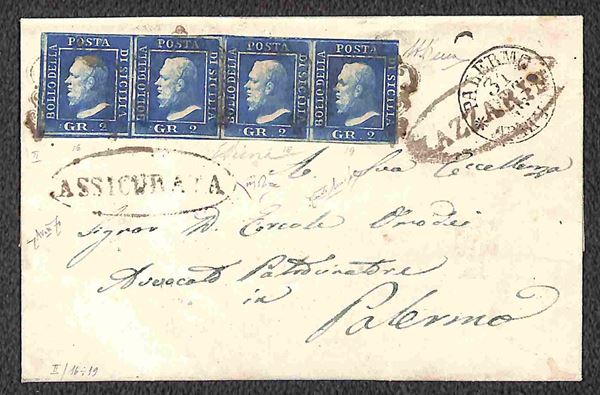 POSTA POSTA POSTA POSTA
BOLLO DELLA DI SICILIA BOLLO DELLA DI SICILIA BOLLO DELLA DI SICILIA BOLLO DELLA DI SICILIA
GR 2 GR 2 GR 2 GR 2
PALERMO
31
AZZARIA
II 16 18 19
ASSICURATA
A Sua Eccellenza
Signor D. Ercole
Avvocato Patrocinatore
in
Palermo
II/16÷19